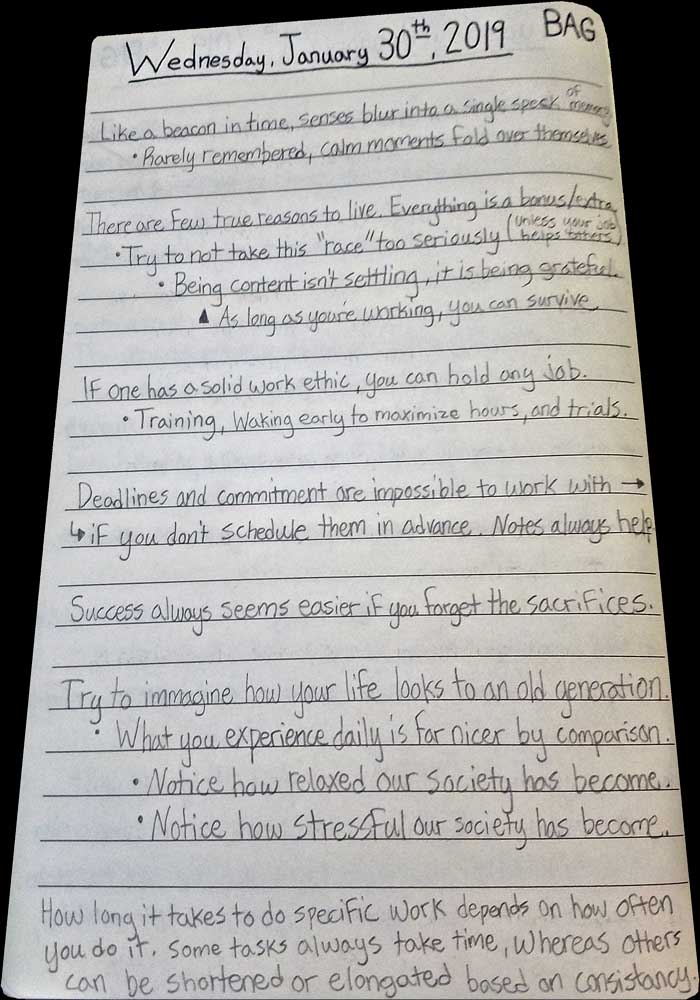 Wednesday, January 30th, 2019 BAG
Like a beacon in time, senses blur into a single speck of memory
• Rarely remembered, calm moments fold over themselves
There are few true reasons to live. Everything is a bonus/extra
• Try to not take this "race" too seriously (unless your job helps others)
• Being content isn't settling, it is being grateful.
▲ As long as you're working, you can survive
If one has a solid work ethic, you can hold any job.
• Training, Waking early to maximize hours, and trials.
Deadlines and commitment are impossible to work with →
↳ if you don't schedule them in advance. Notes always help
Success always seems easier if you forget the sacrifices.
Try to immagine how your life looks to an old generation.
• What you experience daily is far nicer by comparison.
• Notice how relaxed our society has become.
• Notice how stressful our society has become.
How long it takes to do specific work depends on how often
you do it. Some tasks always take time, whereas others
can be shortened or elongated based on consistancy.